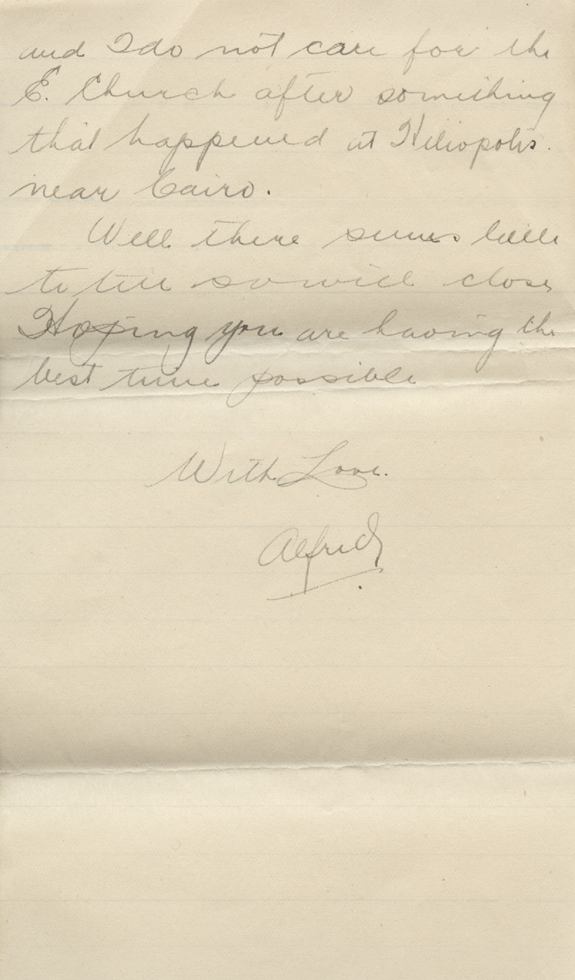 and I do not care for the
E. Church after something
that happened at Heliopolis.
near Cairo.
Well there seems little
to tell so will close
Hoping you are having the
best time possible
With Love.
Alfred